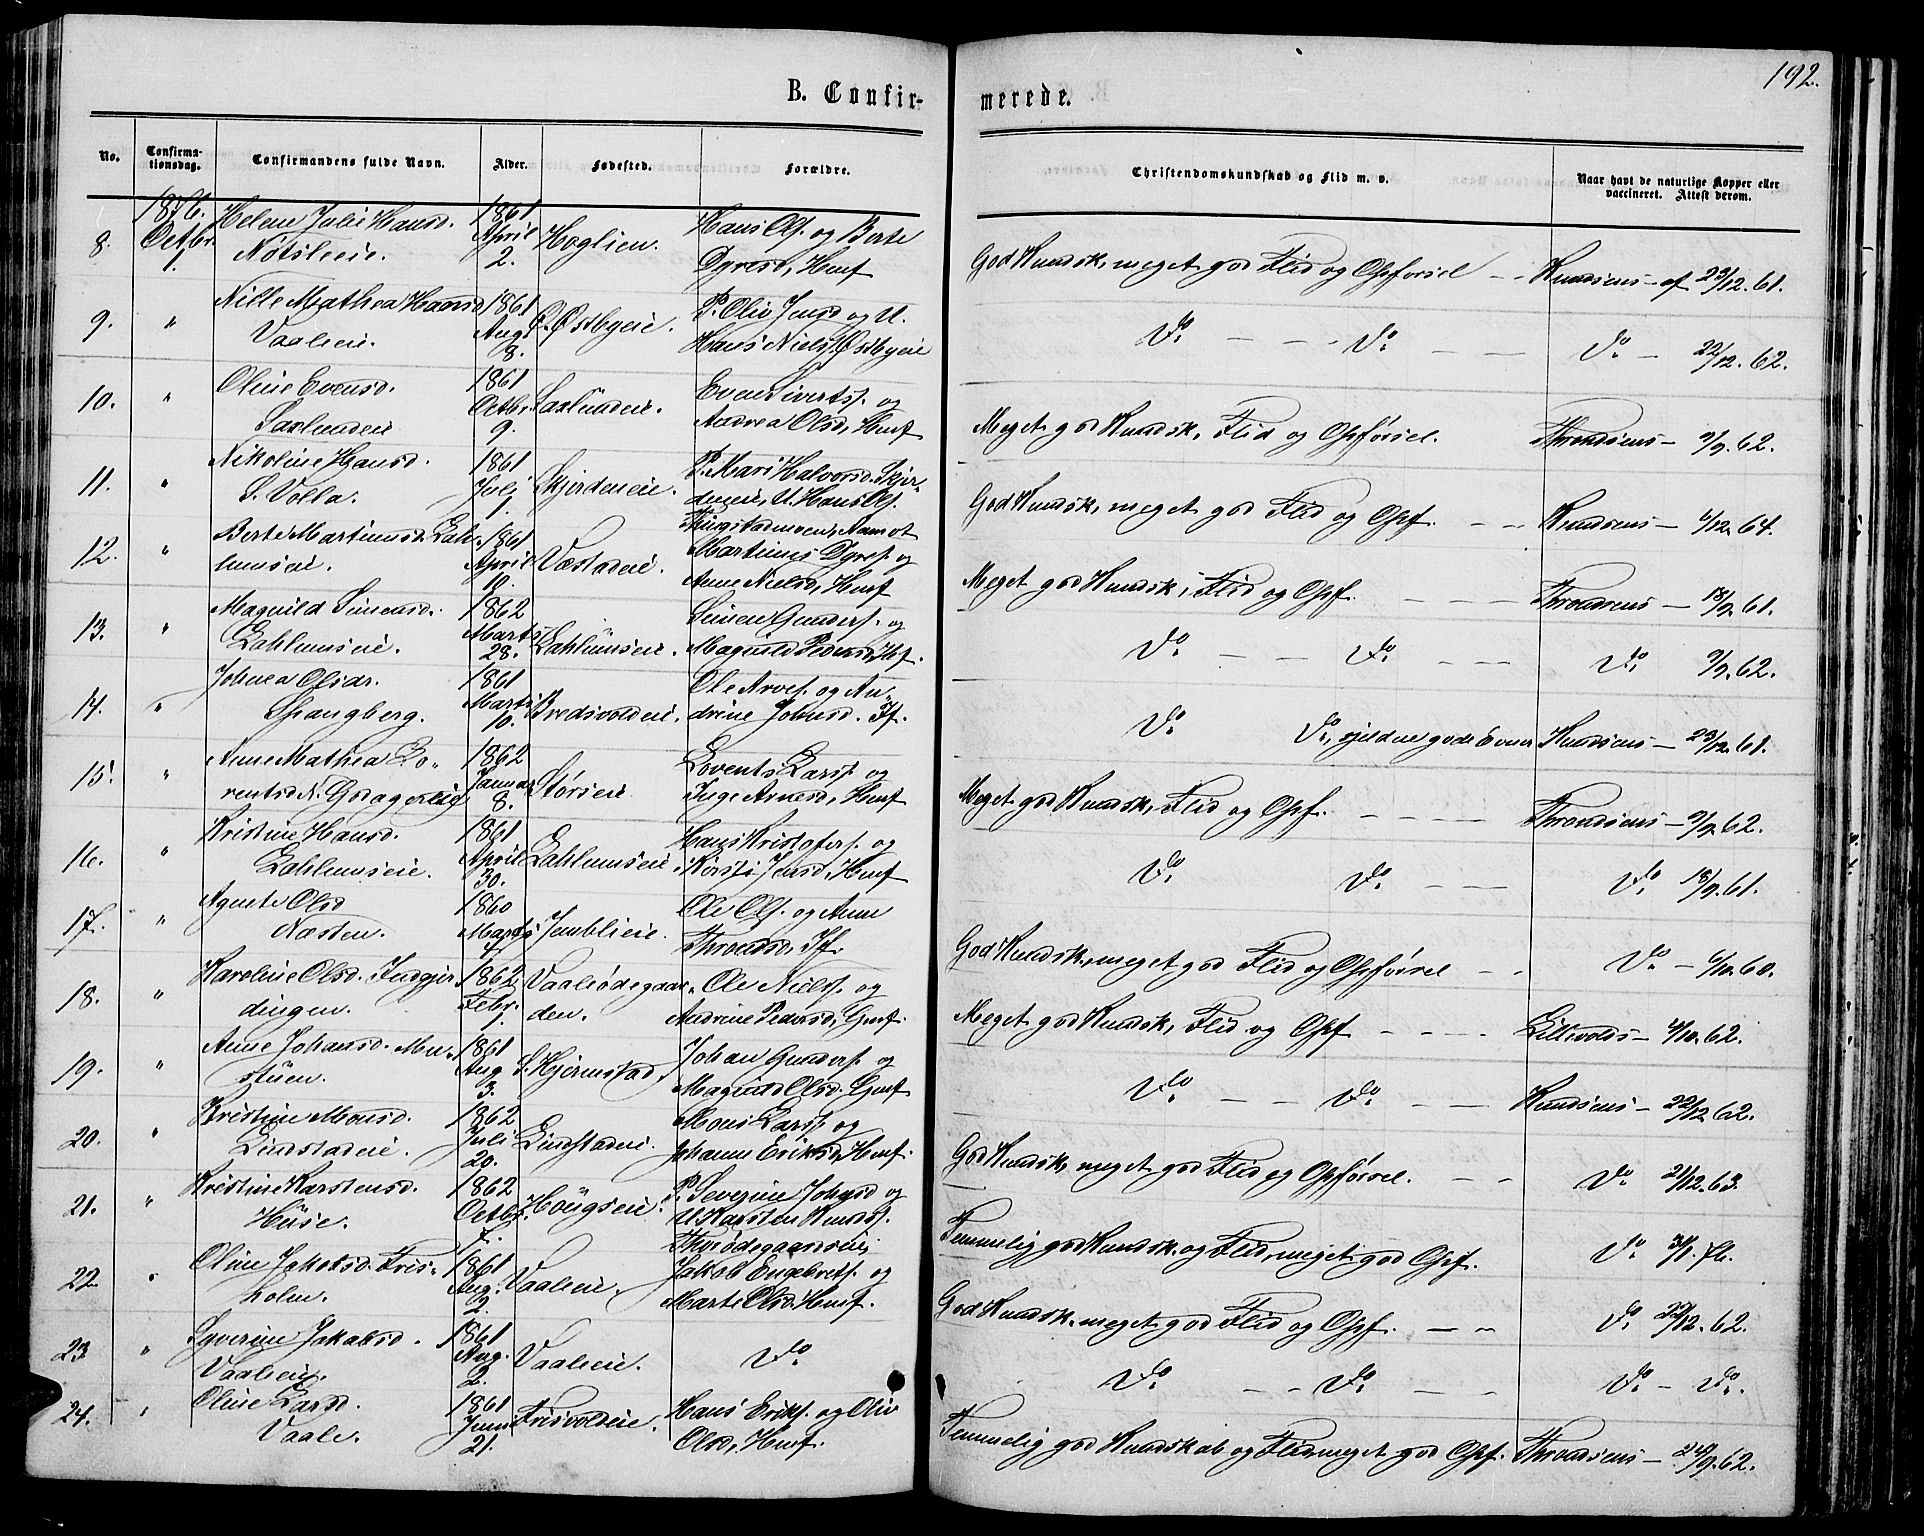 192.
B. Confir-
merede.
No.
Confirma-
tionsdag.
Confirmandens fulde Navn.
Alder.
Fødested.
Forældre.
Christendomskundskab og Flid m. v.
Naar havt de naturlige Kopper eller
vaccineret. Attest derom.
1876.
8. Octbr. 1. Helene Julie Hansd.
1861 April 2. Hoglien. Hans Ols. og Berte
Dyresd, Hmf
God Kundsk, meget god Flid og Opførsel — Knudsens — af 23/12.61.
9. " Nille Mathea Hansd
Vaaleeie. 1861 Aug. 8. Ø. Østbyeie. P. Oliv Jensd og U.
Hans Niels. Østbyeie
Do — — Do — — Do — 22/12.62.
10. " Oline Evensd.
Saxlundeie 1861 Octbr. 9. Saxlundeie. Even Siverts. og
Andrea Olsd, Hmf
Meget god Kundsk, Flid og Opførsel. Throndsens — 9/9.62.
11. " Nikoline Hansd.
S. Volla. 1861 Juli 1. Skjerdeneie. P. Mari Halvorsd. Skjer-
deneie, U. Hans Ols.
Ringstadmoen, Aamot
God Kundsk, meget god Flid og Opf. — Knudsens — 4/12.64.
12. " Berte Martinusd. Lah-
lumseie. 1861 April 10. Vestadeie. Martinus Dyres. og
Anne Nielsd, Hmf
Meget god Kundsk, Flid og Opf. — — — Throndsens — 18/9.61.
13. " Magnild Simensd.
Lahlumseie. 1862 Marts 28. Lahlumseie. Simen Gunders. og
Magnild Pedersd, Hf.
Do — — Do — — Do 9/9.62.
14. " Johnea Olsdr.
Spangberg. 1861 Marts 10. Bredsvoldeie. Ole Arves. og An-
drine Johnsd. If.
Do Do, sjeldne gode Evner Knudsens — 23/12.61.
15. " Anne Mathea Lo-
rentsd N. Godagerlieg 1862 Januar 8. Størseie Lorents Larss. og
Inge Arnesd, Hmf
Meget god Kundsk, Flid og Opf. — — — Throndsens — 9/9.62.
16. " Kristine Hansd.
Lahlumseie. 1861 April 30. Lahlumseie. Hans Kristofers. og
Kirsti Jensd, Hmf
Do Do — — Do 18/9.61.
17. " Agnete Olsd
Næsten. 1860 Marts Ole Ols. og Anne
Throndsd, If.
God Kundsk, meget god Flid og Opførsel — Do — 4/10.60.
18. " Karoline Olsd. Indgjer-
dingen. 1862 Febr. 1. Vaalsødegaar-
den. Ole Niels. og
Andrine Pedersd, Gmf.
Meget god Kundsk, Flid og Opf — — — Lillevolds — 4/10.62.
19. " Anne Johansd. Mu-
stuen. 1861 Aug 3. S. Hjermstad. Johan Gunders. og
Magnild Olsd. Gmf
Do — — Do — — Knudsens — 22/12 62.
20. " Kristine Monsd.
Lindstadeie. 1862 Juli 20. Lindstadeie. Mons Larss. og
Johanne Eriksd, Hmf.
God Kundsk, meget god Flid og Opførsel. — Do 21/12.63.
21. " Kristine Karstensd.
Huse. 1862 Octbr. 7. Høugseie. P. Severine Johnsd og
U. Karsten Knuds.
Temmelig god Kundsk. og Flid, meget god Opf. Do 31/1.76.
22. " Oline Jakobsd. Fris-
holm. 1861 Aug. 2. Vaaleie. Jakob Engebrets. og
Marte Olsd. Hmf.
God Kundsk. meget god Flid og Opf. — Do 22/12.62.
23 " Syverine Jakobsd.
Vaaleeie. 1861 Aug. 2. Vaaleeie. Do
Do — — Do — — Do — Do.
24. " Oline Larsd.
Vaale. 1861 Juni 21. Frisvoldeie. Hans Eriks. og Oliv
Olsd, Hmf.
Temmelig god Kundskab og Flid, meget god Opf. Throndsens — 24/9.62.